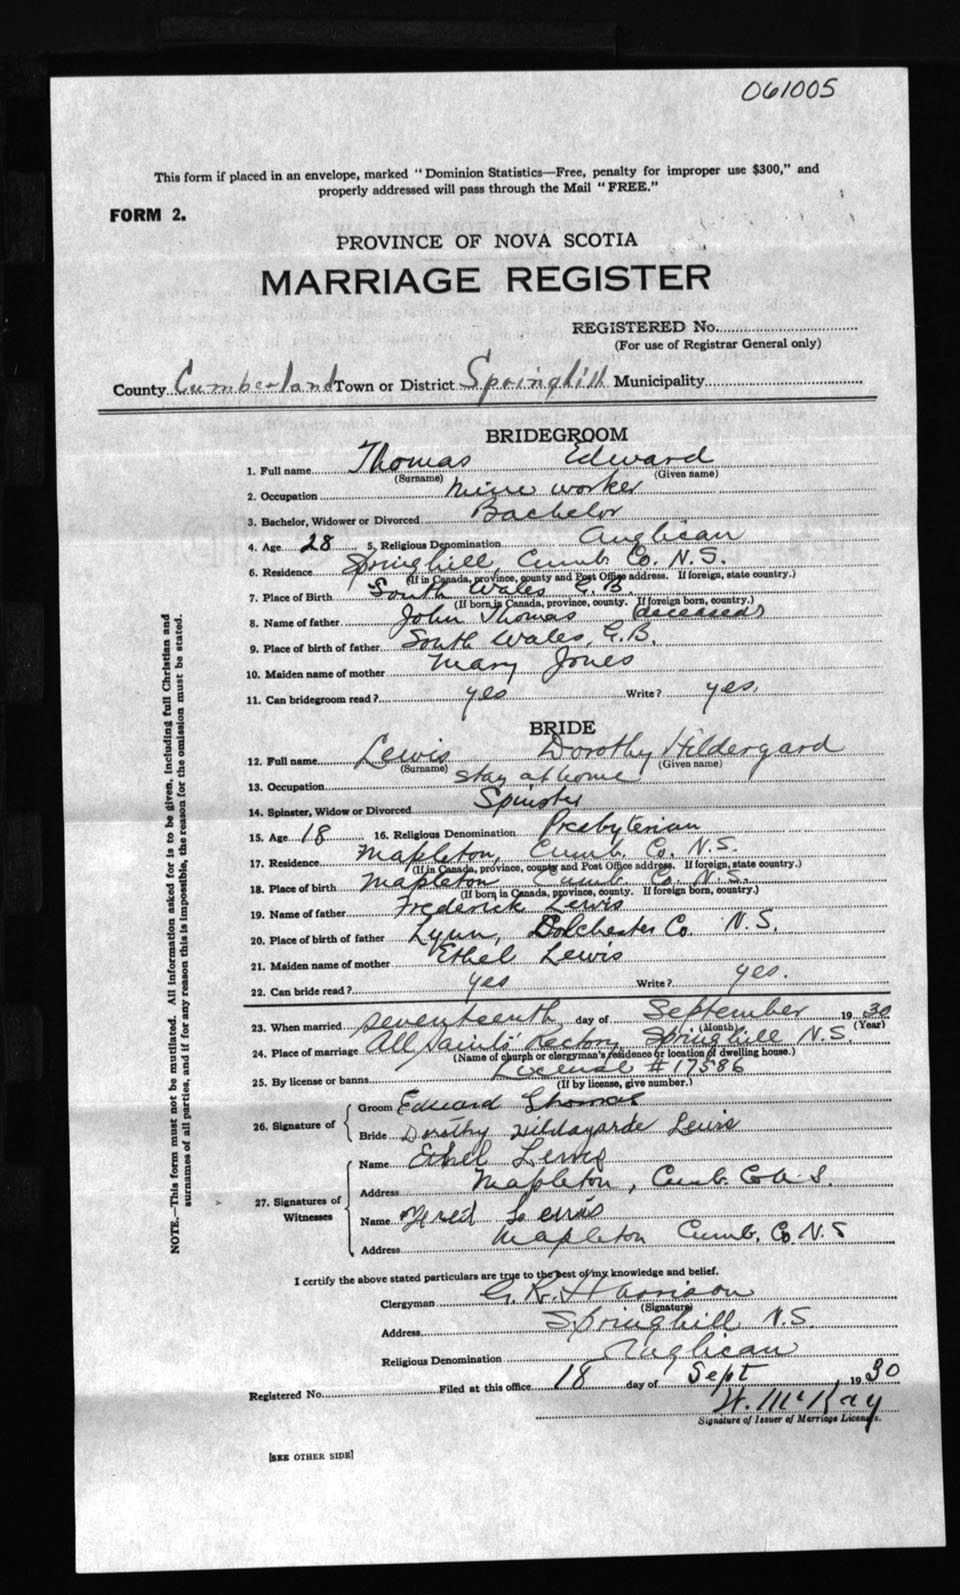 061005
This form if placed in an envelope, marked "Dominion Statistics—Free, penalty for improper use $300," and
properly addressed will pass through the Mail "FREE."
FORM 2.
PROVINCE OF NOVA SCOTIA
MARRIAGE REGISTER
REGISTERED No.
(For use of Registrar General only)
County Cumberland Town or District Springhill Municipality
BRIDEGROOM
1. Full name Thomas Edward
(Surname) (Given name)
2. Occupation mine worker
3. Bachelor, Widower or Divorced Bachelor
4. Age 28 5. Religious Denomination Anglican
6. Residence Springhill, Cumb. Co. N.S.
(If in Canada, province, county and Post Office address. If foreign, state country.)
7. Place of Birth South Wales G.B.
(If born in Canada, province, county. If foreign born, country.)
8. Name of father John Thomas (deceased)
9. Place of birth of father South Wales, G.B.
10. Maiden name of mother Mary Jones
11. Can bridegroom read? yes Write? yes.
BRIDE
12. Full name Lewis Dorothy Hildergard
(Surname) (Given name)
13. Occupation stay at home
14. Spinster, Widow or Divorced Spinster
15. Age 18 16. Religious Denomination Presbyterian
17. Residence Mapleton, Cumb. Co. N.S.
(If in Canada, province, county and Post Office address. If foreign, state country.)
18. Place of birth Mapleton Cumb. Co. N.S.
(If born in Canada, province, county. If foreign born, country.)
19. Name of father Frederick Lewis
20. Place of birth of father Lynn, Colchester Co. N.S.
21. Maiden name of mother Ethel Lewis
22. Can bride read? yes Write? yes.
23. When married seventeenth day of September 1930
(Month) (Year)
24. Place of marriage All Saints' Rectory Springhill N.S.
(Name of church or clergyman's residence or location of dwelling house.)
25. By license or banns License # 17586
(If by license, give number.)
26. Signature of Groom Edward Thomas
Bride Dorothy Hildagarde Lewis
27. Signatures of Witnesses Name Ethel Lewis
Address Mapleton, Cumb. Co N.S.
Name Fred Lewis
Address Mapleton Cumb. Co. N.S
I certify the above stated particulars are true to the best of my knowledge and belief.
Clergyman G. R. Harrison
(Signature)
Address Springhill N.S.
Religious Denomination Anglican
Registered No. Filed at this office 18 day of Sept 1930
W. McKay
Signature of Issuer of Marriage Licenses.
[SEE OTHER SIDE]
NOTE.—This form must not be mutilated. All information asked for is to be given, including full Christian and
surnames of all parties, and if for any reason this is impossible, the reason for the omission must be stated.